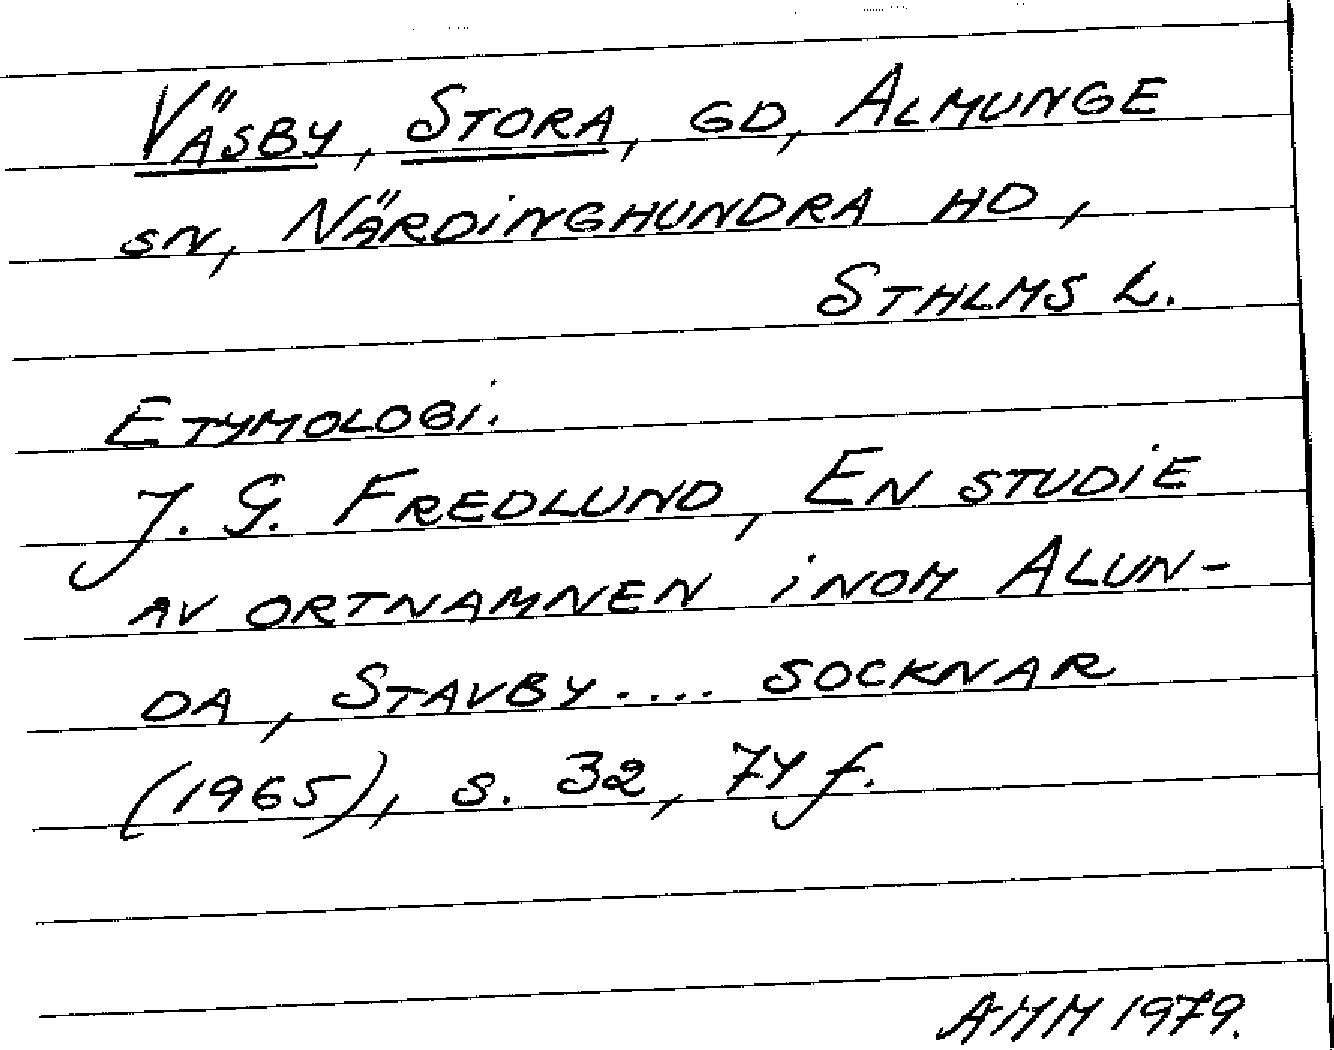 Väsby, Stora, gd, Almunge
sn, Närdinghundra hd,
Sthlms l.
Etymologi.
J. G. Fredlund, En studie
av ortnamnen inom Alun-
da, Stavby.... socknar
(1965), s. 32, 74 f.
AMM 1979.